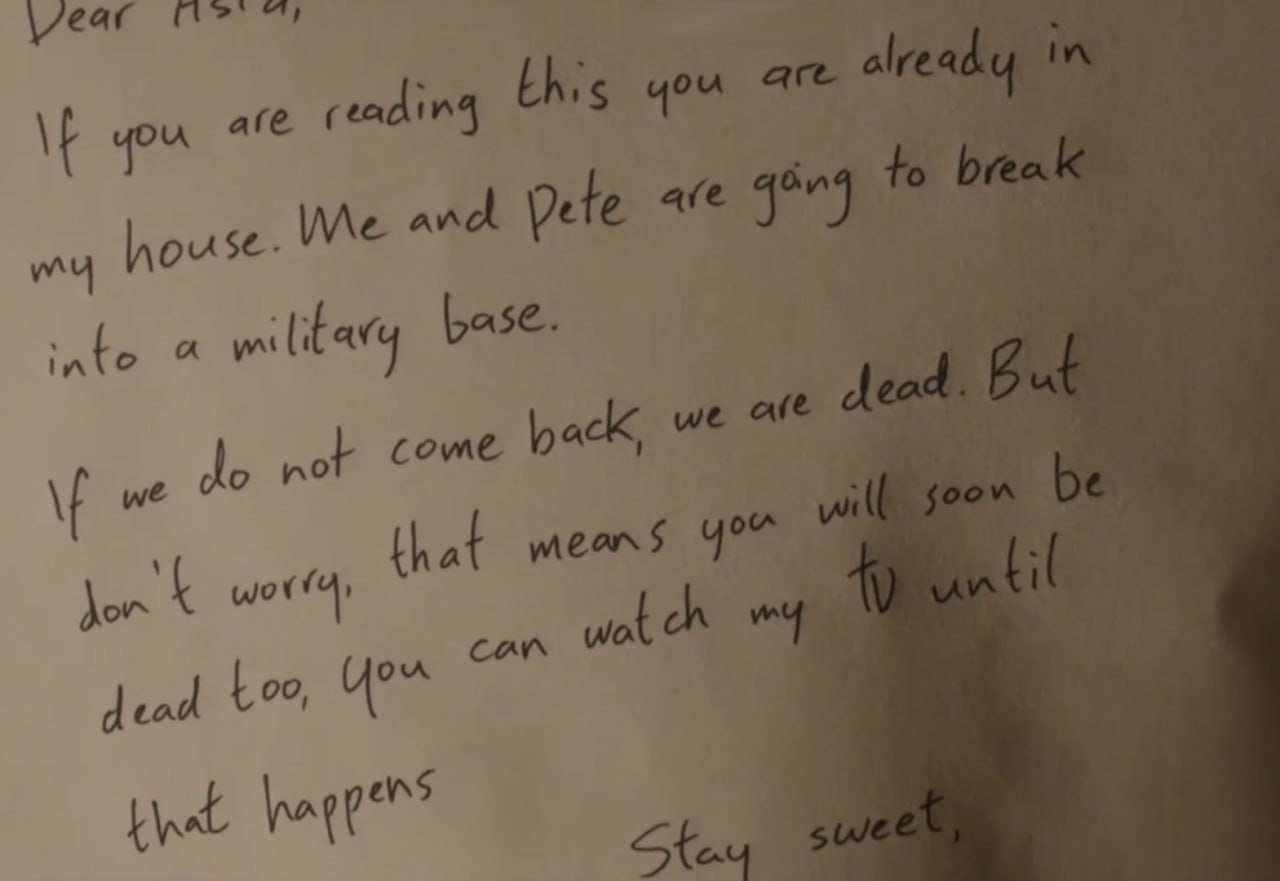 Dear Asra,
If you are reading this you are already in
my house. Me and Pete are going to break
into a military base.
If we do not come back, we are dead. But
don't worry, that means you will soon be
dead too, you can watch my TV until
that happens
Stay sweet,